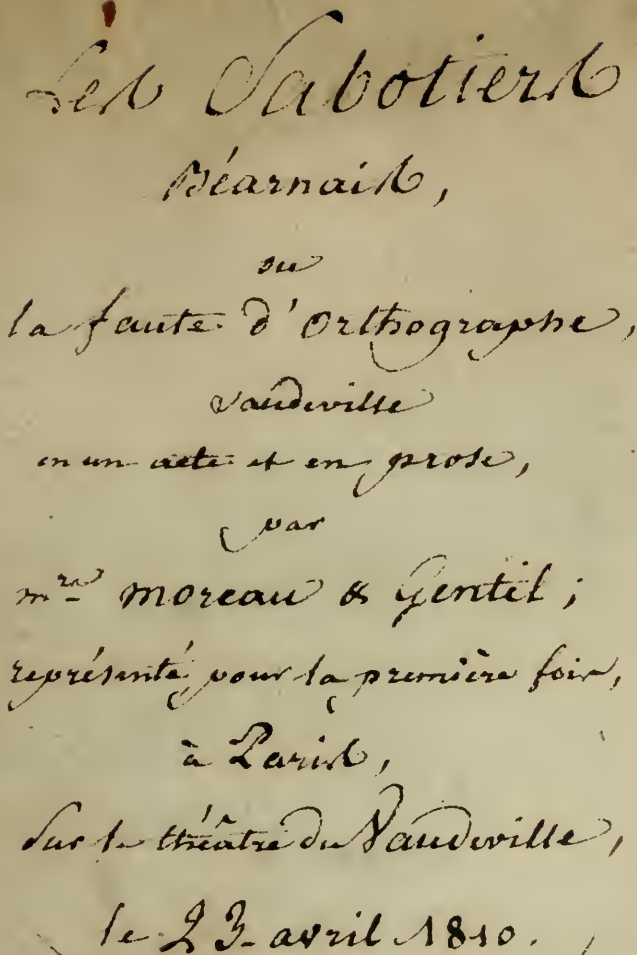 Les Sabotiers
Béarnais,
ou
la faute d'Orthographe,
vaudeville
en un acte et en prose,
par
mrs moreau & Gentil;
représenté pour la première fois,
à Paris,
Sur le théâtre du Vaudeville,
le 23 avril 1810.